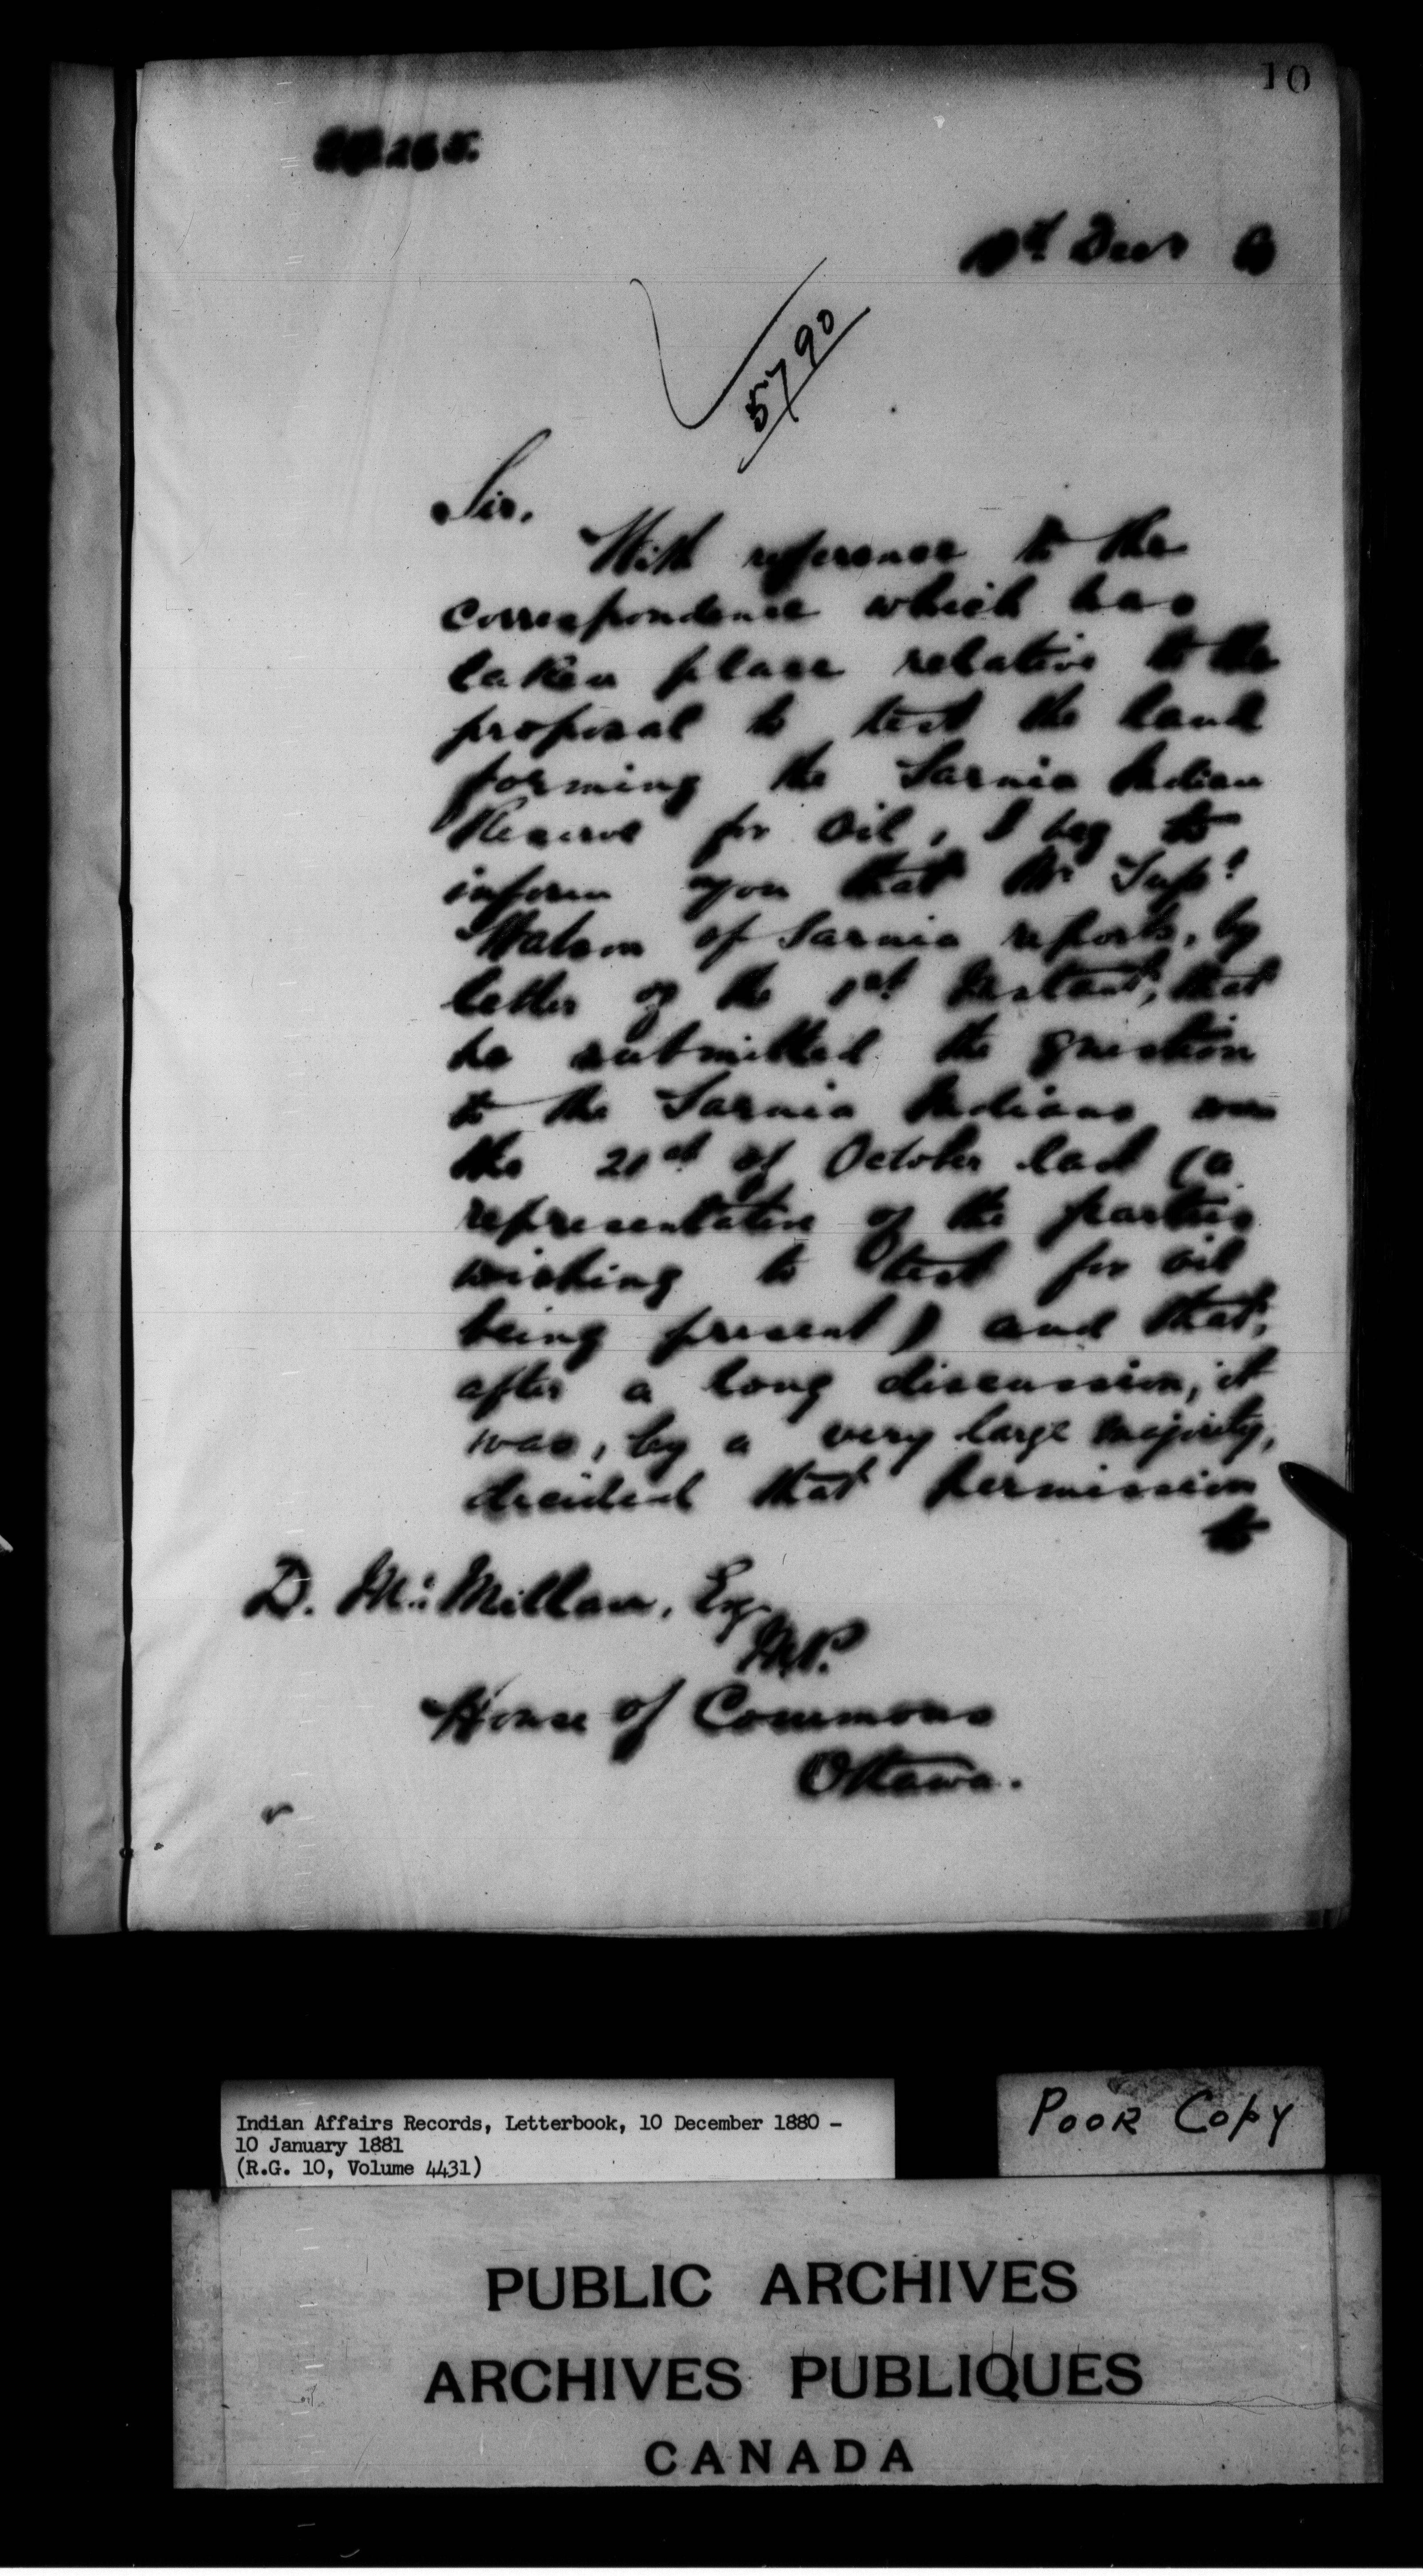 10
Decr
5790
Sir,
With reference to the
correspondence which has
taken place relative to the
proposal to test the land
forming the Sarnia Indian
Reserve for Oil, I beg to
inform you that Mr Supt
Watson of Sarnia reports, by
letter of the 1st Instant, that
he submitted the question
to the Sarnia Indians on
the 21st of October last (a
representative of the parties
wishing to test for oil
being present) and that,
after a long discussion, it
was, by a very large majority,
decided that permission
to
D. McMillan, Esq.
M.P.
House of Commons
Ottawa.
Indian Affairs Records, Letterbook, 10 December 1880 -
10 January 1881
(R.G. 10, Volume 4431)
POOR COPY
PUBLIC ARCHIVES
ARCHIVES PUBLIQUES
CANADA